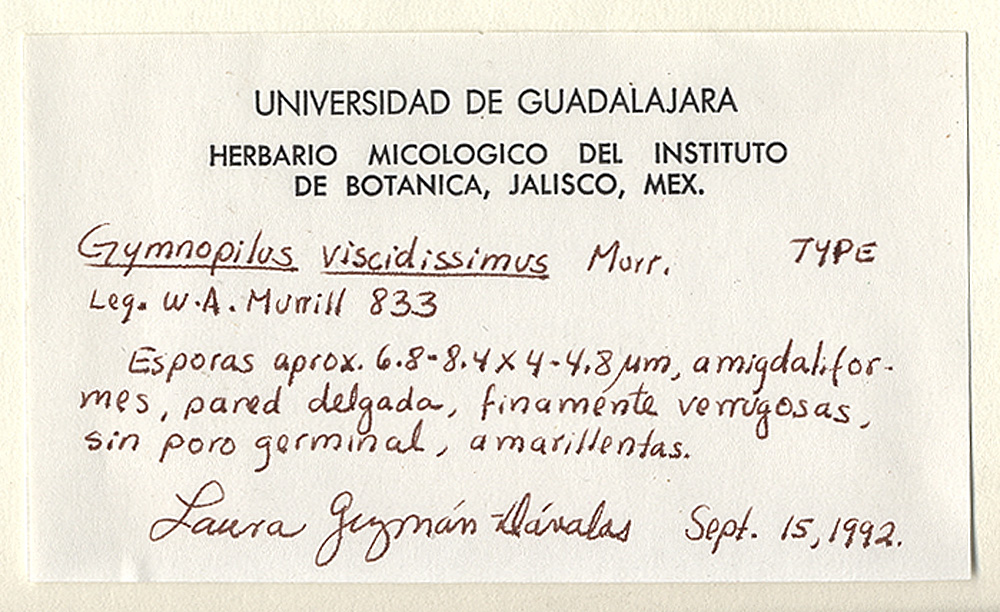 UNIVERSIDAD DE GUADALAJARA
HERBARIO MICOLOGICO DEL INSTITUTO
DE BOTANICA, JALISCO, MEX.
Gymnopilus viscidissimus Murr. TYPE
Leg. W.A. Murrill 833
Esporas aprox. 6.8-8.4 x 4-4.8 µm, amigdalifor-
mes, pared delgada, finamente verrugosas,
sin poro germinal, amarillentas.
Laura Guzmán-Dávalos Sept. 15, 1992.